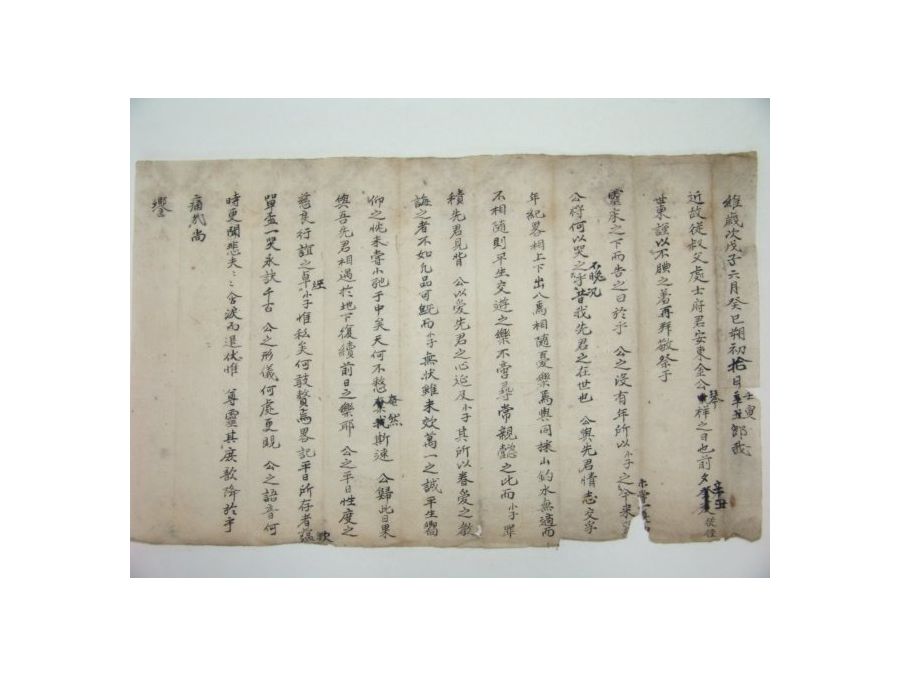 維歲次戊子六月癸巳朔初拾日壬寅即我
近故從叔父處士府君安東金公祥之日也前夕辛丑從侄
世東謹以不腆之著再拜敬祭于
靈床之下而告之曰於乎 公之沒有年所以小子之
公將何以哭之乎不晩况昔我先君之在世也 公與先君情志交孚
年紀畧相上下出入焉相隨憂樂焉與同採山釣水無適而
不相隨則平生交遊之樂不啻尋常親懿之比而小子畢
積先君見背 公以愛先君之心迨及小子其所以眷愛之教
誨之者不如凡品可貺而小子無狀雖未效萬一之誠平生嚮
仰之忱未嘗小弛于中矣天何不憖奄然斯速 公歸此日果
與吾先君相遇於地下復續前日之樂耶 公之平日性度之
慈良行誼之卓小子惟私矣何敢贅焉畧記平日所存者
單盃一哭永訣千古 公之形儀何處更覩 公之語音何
時更聞悲夫悲夫含淚而退伏惟 尊靈其庶歆降於乎
痛哉尚
饗